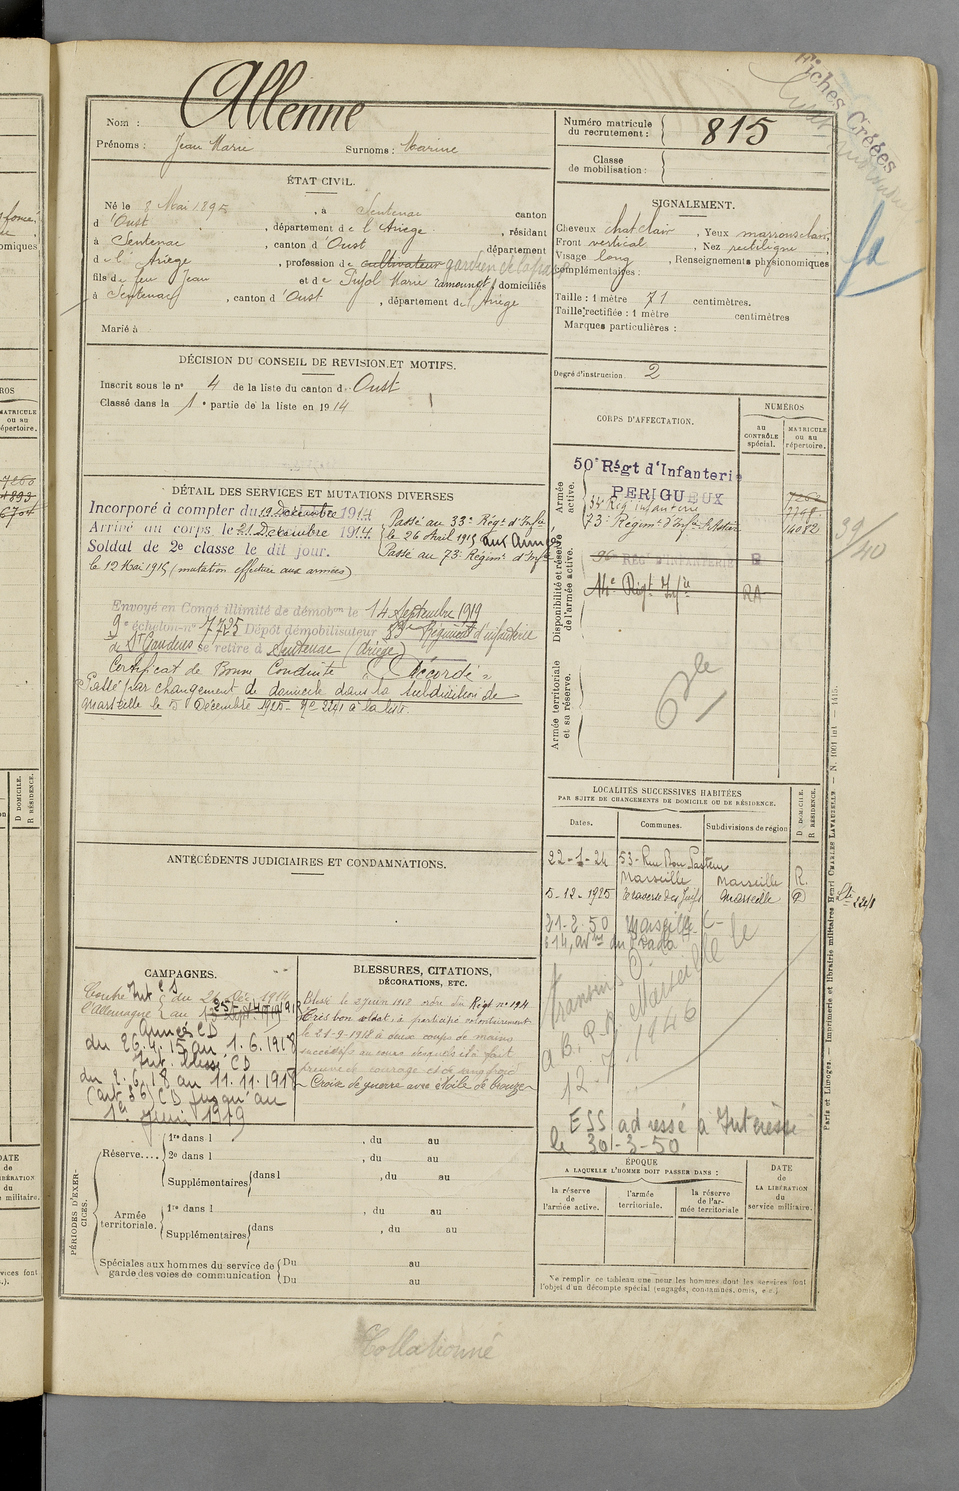 Allenne
Nom :
Prénoms : Jean Marie Surnoms : Marine
Numéro matricule du recrutement : 815
Classe de mobilisation :
Fiches Créées
ÉTAT CIVIL.
Né le 8 Mai 1895, à Sentenac canton
d'Oust, département de l'Ariège, résidant
à Sentenac, canton d'Oust département
de l'Ariège, profession de cultivateur gardien de la
fils de feu Jean et de Pujol Marie ramounet domiciliés
à Sentenac, canton d'Oust, département de l'Ariège
Marié à
SIGNALEMENT.
Cheveux chat clair, Yeux marrons clair,
Front vertical, Nez rectiligne
Visage long, Renseignements physionomiques
complémentaires :
Taille : 1 mètre 71 centimètres.
Taille rectifiée : 1 mètre centimètres
Marques particulières :
Degré d'instruction. 2
DÉCISION DU CONSEIL DE REVISION ET MOTIFS.
Inscrit sous le n° 4 de la liste du canton d Oust
Classé dans la 1e partie de la liste en 1914
CORPS D'AFFECTATION.
NUMÉROS
au CONTRÔLE spécial.
MATRICULE ou au répertoire.
Armée active.
50e Régt d'Infanterie
PERIGUEUX
34 Rég infanterie
73e Régimt d'Inf
Disponibilité et réserve de l'armée active.
RÉGT D'INFANTERIE
14e Régt Infie RA
Armée territoriale et sa réserve.
39/40
DÉTAIL DES SERVICES ET MUTATIONS DIVERSES
Incorporé à compter du 19 Décembre 1914
Arrivé au corps le 21 Décembre 1914
Soldat de 2e classe le dit jour.
Passé au 33e Régt d'Infie
le 26 Avril 1915 aux Armées
Passé au 73e Régimt d'Infie
le 12 Mai 1915 (mutation effectuée aux armées)
Envoyé en Congé illimité de démobon le 14 Septembre 1919
9e échelon n° 7725 Dépôt démobilisateur 83e Régiment d'infanterie
de St Gaudens se retire à Sentenac (Ariège)
Certificat de Bonne Conduite "Accordé"
Passé par changement de domicile dans la subdivision de
Marseille le 5 Décembre 1925 - N° 2241 à la liste.
LOCALITÉS SUCCESSIVES HABITÉES
PAR SUITE DE CHANGEMENTS DE DOMICILE OU DE RÉSIDENCE.
Dates. Communes. Subdivisions de région
D DOMICILE. R RÉSIDENCE.
22-1-24 53 - Rue Bon Pasteur
Marseille Marseille R.
5-12-1925 Marseille D
31-3-50 Marseille
614, av du Prado
Marseille le
12.7.1946
ESS adressé à Intéressé
le 30-3-50
ANTÉCÉDENTS JUDICIAIRES ET CONDAMNATIONS.
CAMPAGNES.
Contre l'Allemagne
Int CS du 21 Déc 1914
Armées CD
du 26.4.15 au 1.6.1918
Int. blessé CD
du 2.6.18 au 11.11.1918
(art 36) CD jusqu'au
1er Juin 1919
BLESSURES, CITATIONS, DÉCORATIONS, ETC.
Blessé le 2 juin 1918 ordre du Régt n° 194
Très bon soldat, a participé volontairement
le 21-9-1918 à deux coups de mains
successifs au cours desquels il a fait
preuve de courage et de sang froid
Croix de guerre avec étoile de bronze
PÉRIODES D'EXERCICES.
Réserve....
1re dans l , du au
2e dans l , du au
Supplémentaires dans l , du au
Armée territoriale.
1re dans l , du au
Supplémentaires dans , du au
Spéciales aux hommes du service de garde des voies de communication
Du au
Du au
ÉPOQUE
A LAQUELLE L'HOMME DOIT PASSER DANS :
la réserve de l'armée active.
l'armée territoriale.
la réserve de l'armée territoriale
DATE DE LA LIBÉRATION du service militaire.
Ne remplir ce tableau que pour les hommes dont les services font
l'objet d'un décompte spécial (engagés, condamnés, omis, etc.)
Paris et Limoges. — Imprimerie et librairie militaires Henri CHARLES LAVAUZELLE
Collationné